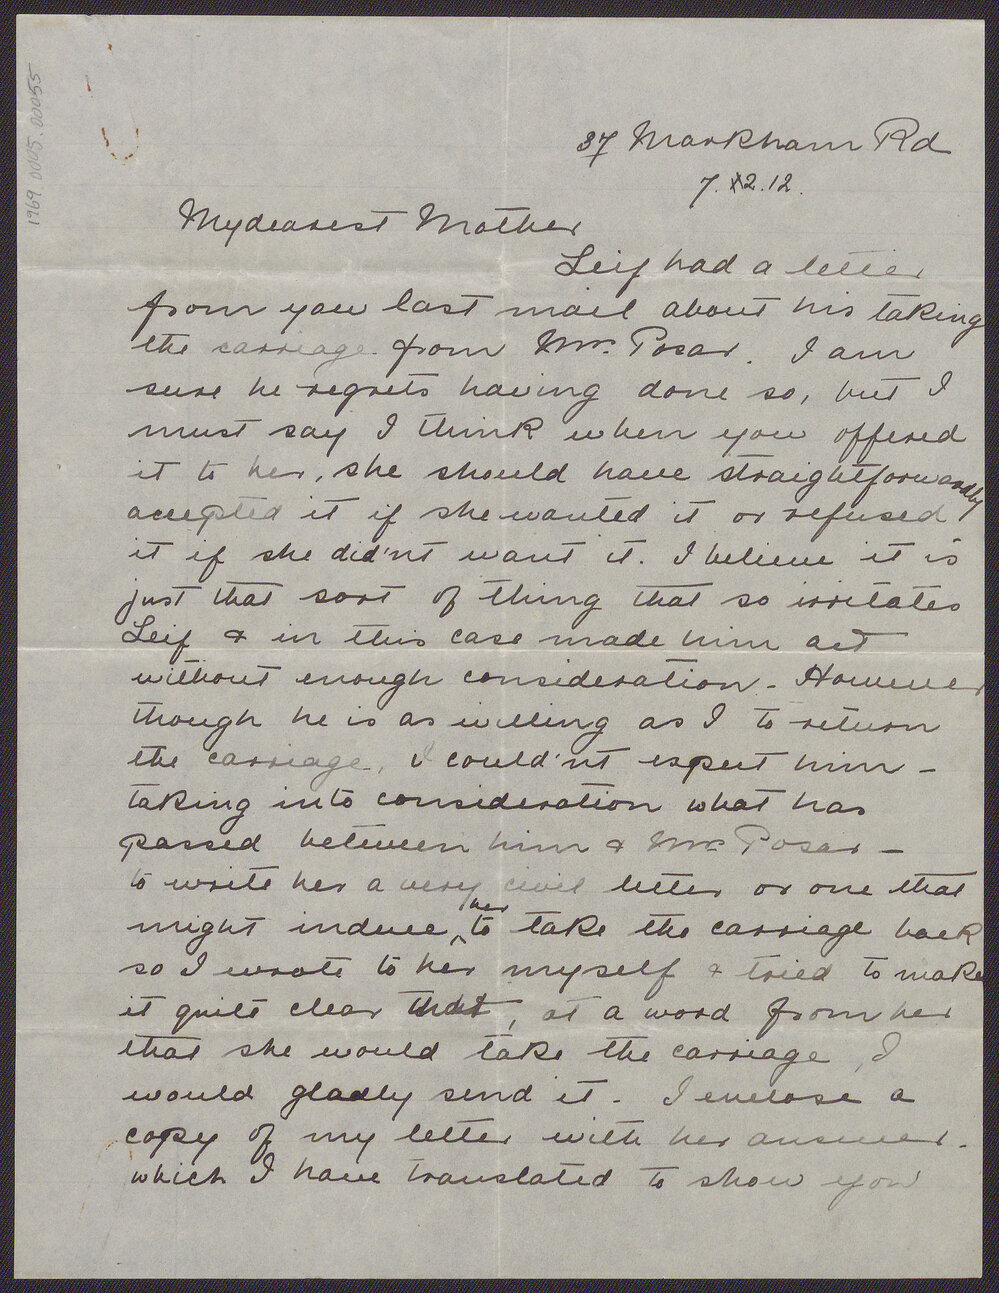 1969.0005.00055
37 Markham Rd
7. 12. 12.
My dearest Mother
Leif had a letter
from you last mail about his taking
the carriage from Mrs. Posar. I am
sure he regrets having done so, but I
must say I think when you offered
it to her, she should have straightforwardly
accepted it if she wanted it or refused
it if she did'nt want it. I believe it is
just that sort of thing that so irritates
Leif & in this case made him act
without enough consideration - However
though he is as willing as I to return
the carriage, I could'nt expect him -
taking into consideration what has
passed between him & Mrs Posar -
to write her a very civil letter or one that
might induce her to take the carriage back
so I wrote to her myself & tried to make
it quite clear that, at a word from her
that she would take the carriage, I
would gladly send it - I enclose a
copy of my letter with her answer -
which I have translated to show you